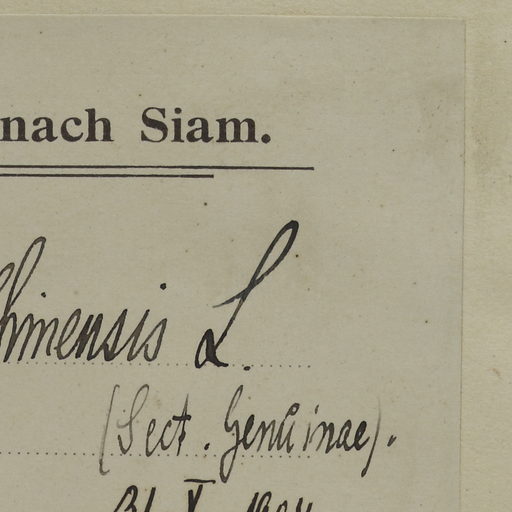 nach Siam.
chinensis L.
(Sect. Genuinae).
31 V. 1904